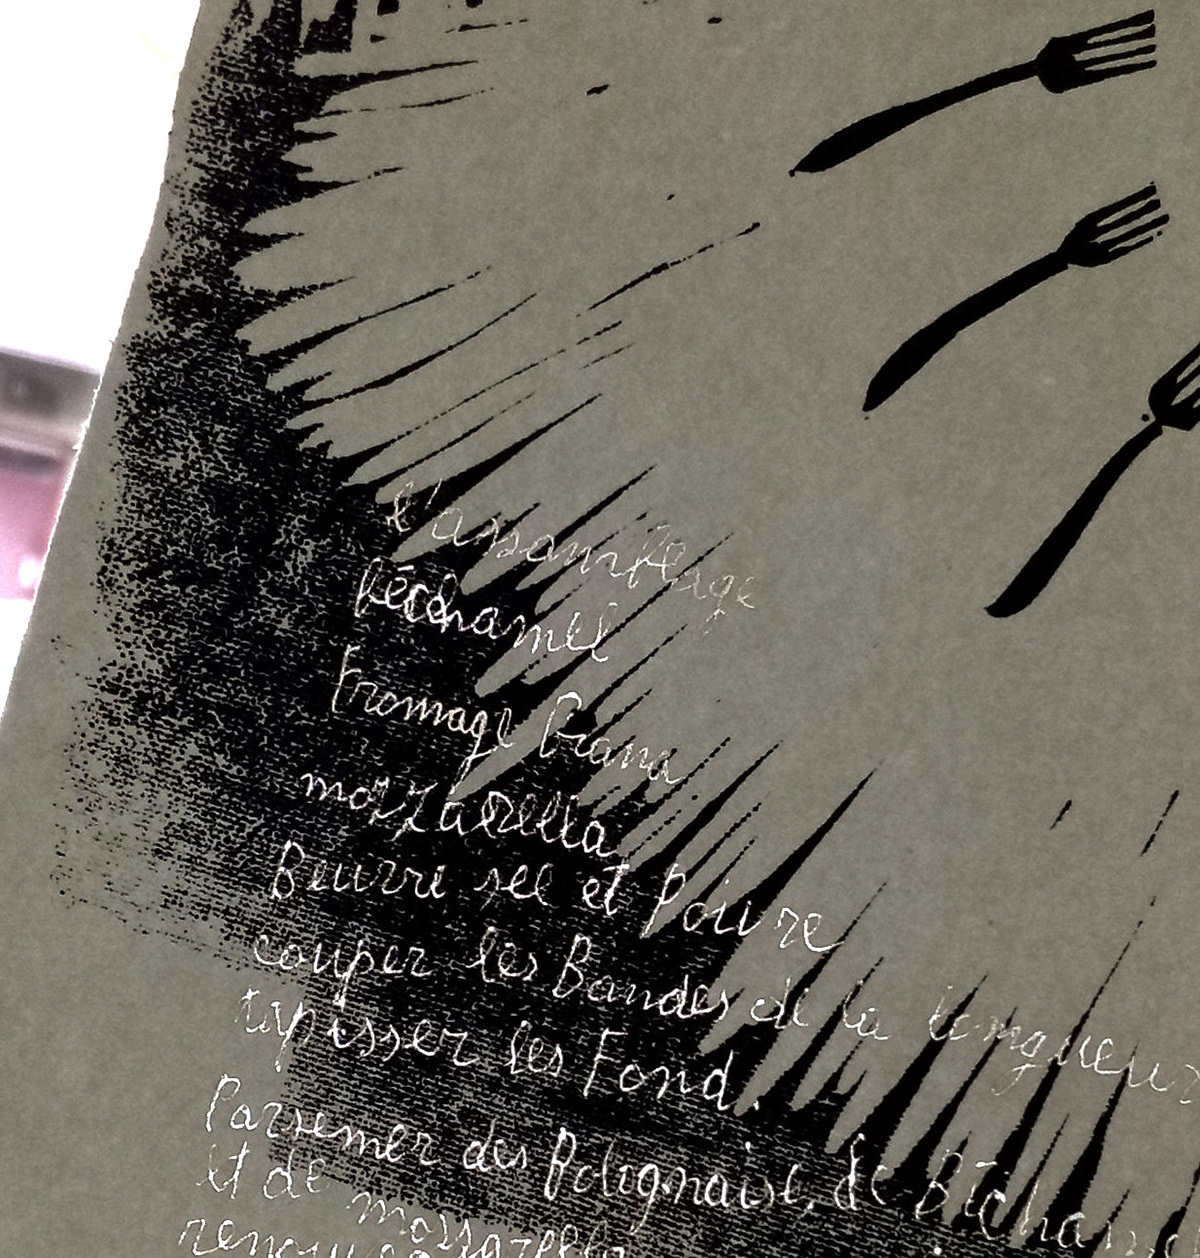 l'assamblage
Béchamel
Fromage Grana
mozzarella
Beurre sel et Poivre
couper les Bandes de la longueur
tapisser les Fond.
Parsemer des Bolignaise, de Bécham
et de mozzarella